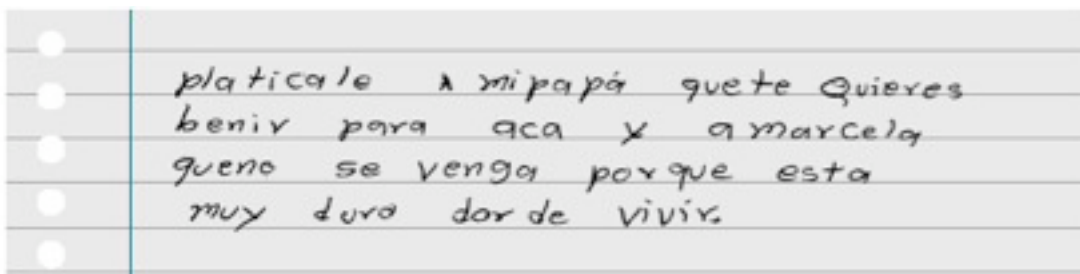 platicale a mi papá que te Quieres
benir para aca y a marcela
queno se venga porque esta
muy duro dar de vivir.